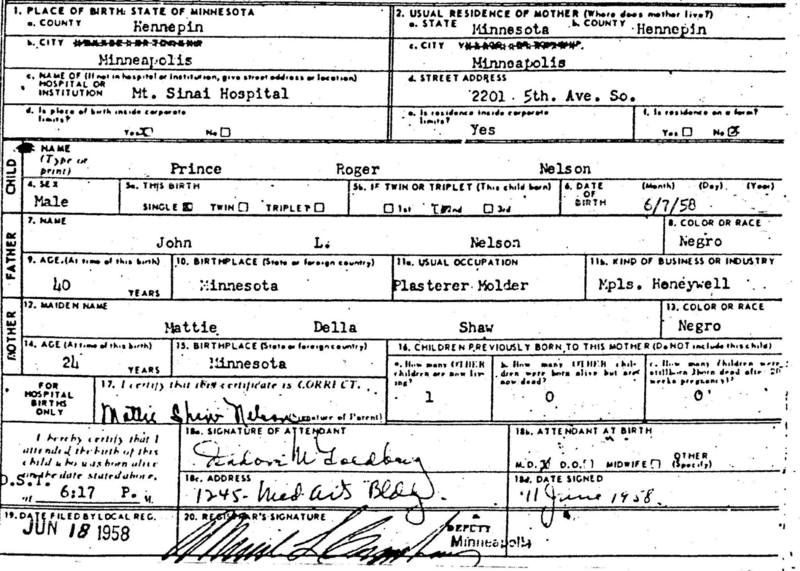 1. PLACE OF BIRTH: STATE OF MINNESOTA
a. COUNTY Hennepin
b. CITY
Minneapolis
c. NAME OF (If not in hospital or institution, give street address or location)
HOSPITAL OR
INSTITUTION Mt. Sinai Hospital
d. Is place of birth inside corporate
limits?
Yes X No ☐
2. USUAL RESIDENCE OF MOTHER (Where does mother live?)
a. STATE Minnesota b. COUNTY Hennepin
c. CITY
Minneapolis
d. STREET ADDRESS
2201 5th. Ave. So.
e. Is residence inside corporate
limits?
Yes
f. Is residence on a farm?
Yes ☐ No ☒
CHILD
NAME
(Type or
print)
Prince Roger Nelson
4. SEX
Male
5a. THIS BIRTH
SINGLE ☒ TWIN ☐ TRIPLET ☐
5b. IF TWIN OR TRIPLET (This child born)
☐ 1st 2nd ☐ 3rd
6. DATE
OF
BIRTH
(Month) (Day) (Year)
6/7/58
FATHER
7. NAME
John L. Nelson
8. COLOR OR RACE
Negro
9. AGE (At time of this birth)
40 YEARS
10. BIRTHPLACE (State or foreign country)
Minnesota
11a. USUAL OCCUPATION
Plasterer Molder
11b. KIND OF BUSINESS OR INDUSTRY
Mpls. Honeywell
MOTHER
12. MAIDEN NAME
Mattie Della Shaw
13. COLOR OR RACE
Negro
14. AGE (At time of this birth)
24 YEARS
15. BIRTHPLACE (State or foreign country)
Minnesota
16. CHILDREN PREVIOUSLY BORN TO THIS MOTHER (Do NOT include this child)
a. How many OTHER
children are now liv-
ing?
1
b. How many OTHER chil-
dren were born alive but are
now dead?
0
c. How many children were
stillborn (born dead after 20
weeks pregnancy)?
0
FOR
HOSPITAL
BIRTHS
ONLY
17. I certify that this certificate is CORRECT.
Mattie Shaw Nelson (Signature of Parent)
I hereby certify that I
attended the birth of this
child who was born alive
on the date stated above.
D.S.T.
at 6:17 P. M.
18a. SIGNATURE OF ATTENDANT
18b. ATTENDANT AT BIRTH
M.D. X D.O. MIDWIFE ☐ OTHER
(Specify)
18c. ADDRESS
1245- Med Arts Bldg.
18d. DATE SIGNED
11 June 1958.
19. DATE FILED BY LOCAL REG.
JUN 18 1958
20. REGISTRAR'S SIGNATURE
DEPUTY
Minneapolis